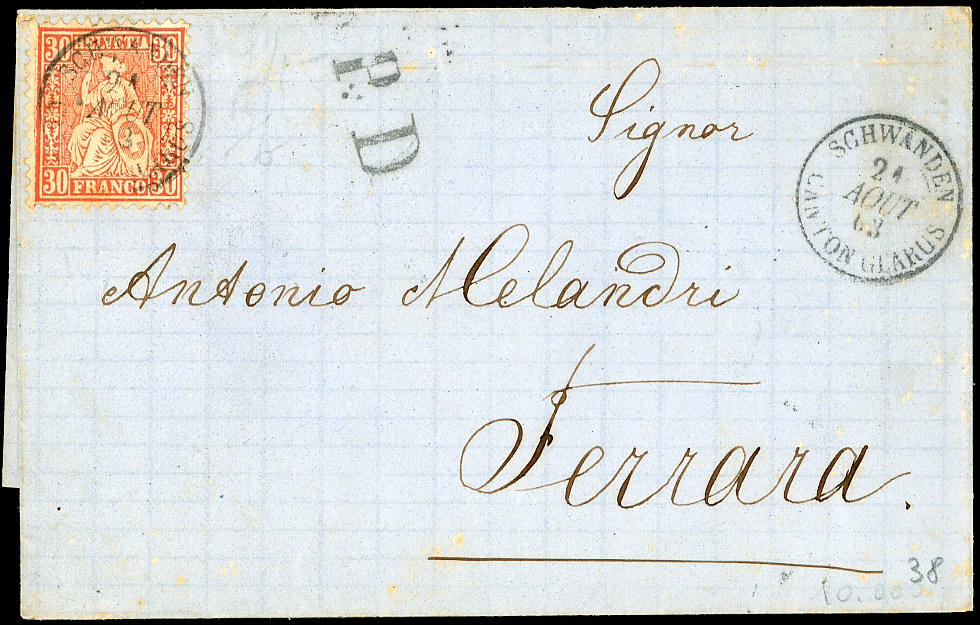 30 HELVETIA 30
30 FRANCO 30
P.D
Signor
Antonio Melandri
Ferrara.
SCHWANDEN
21
AOUT
63
CANTON GLARUS
38